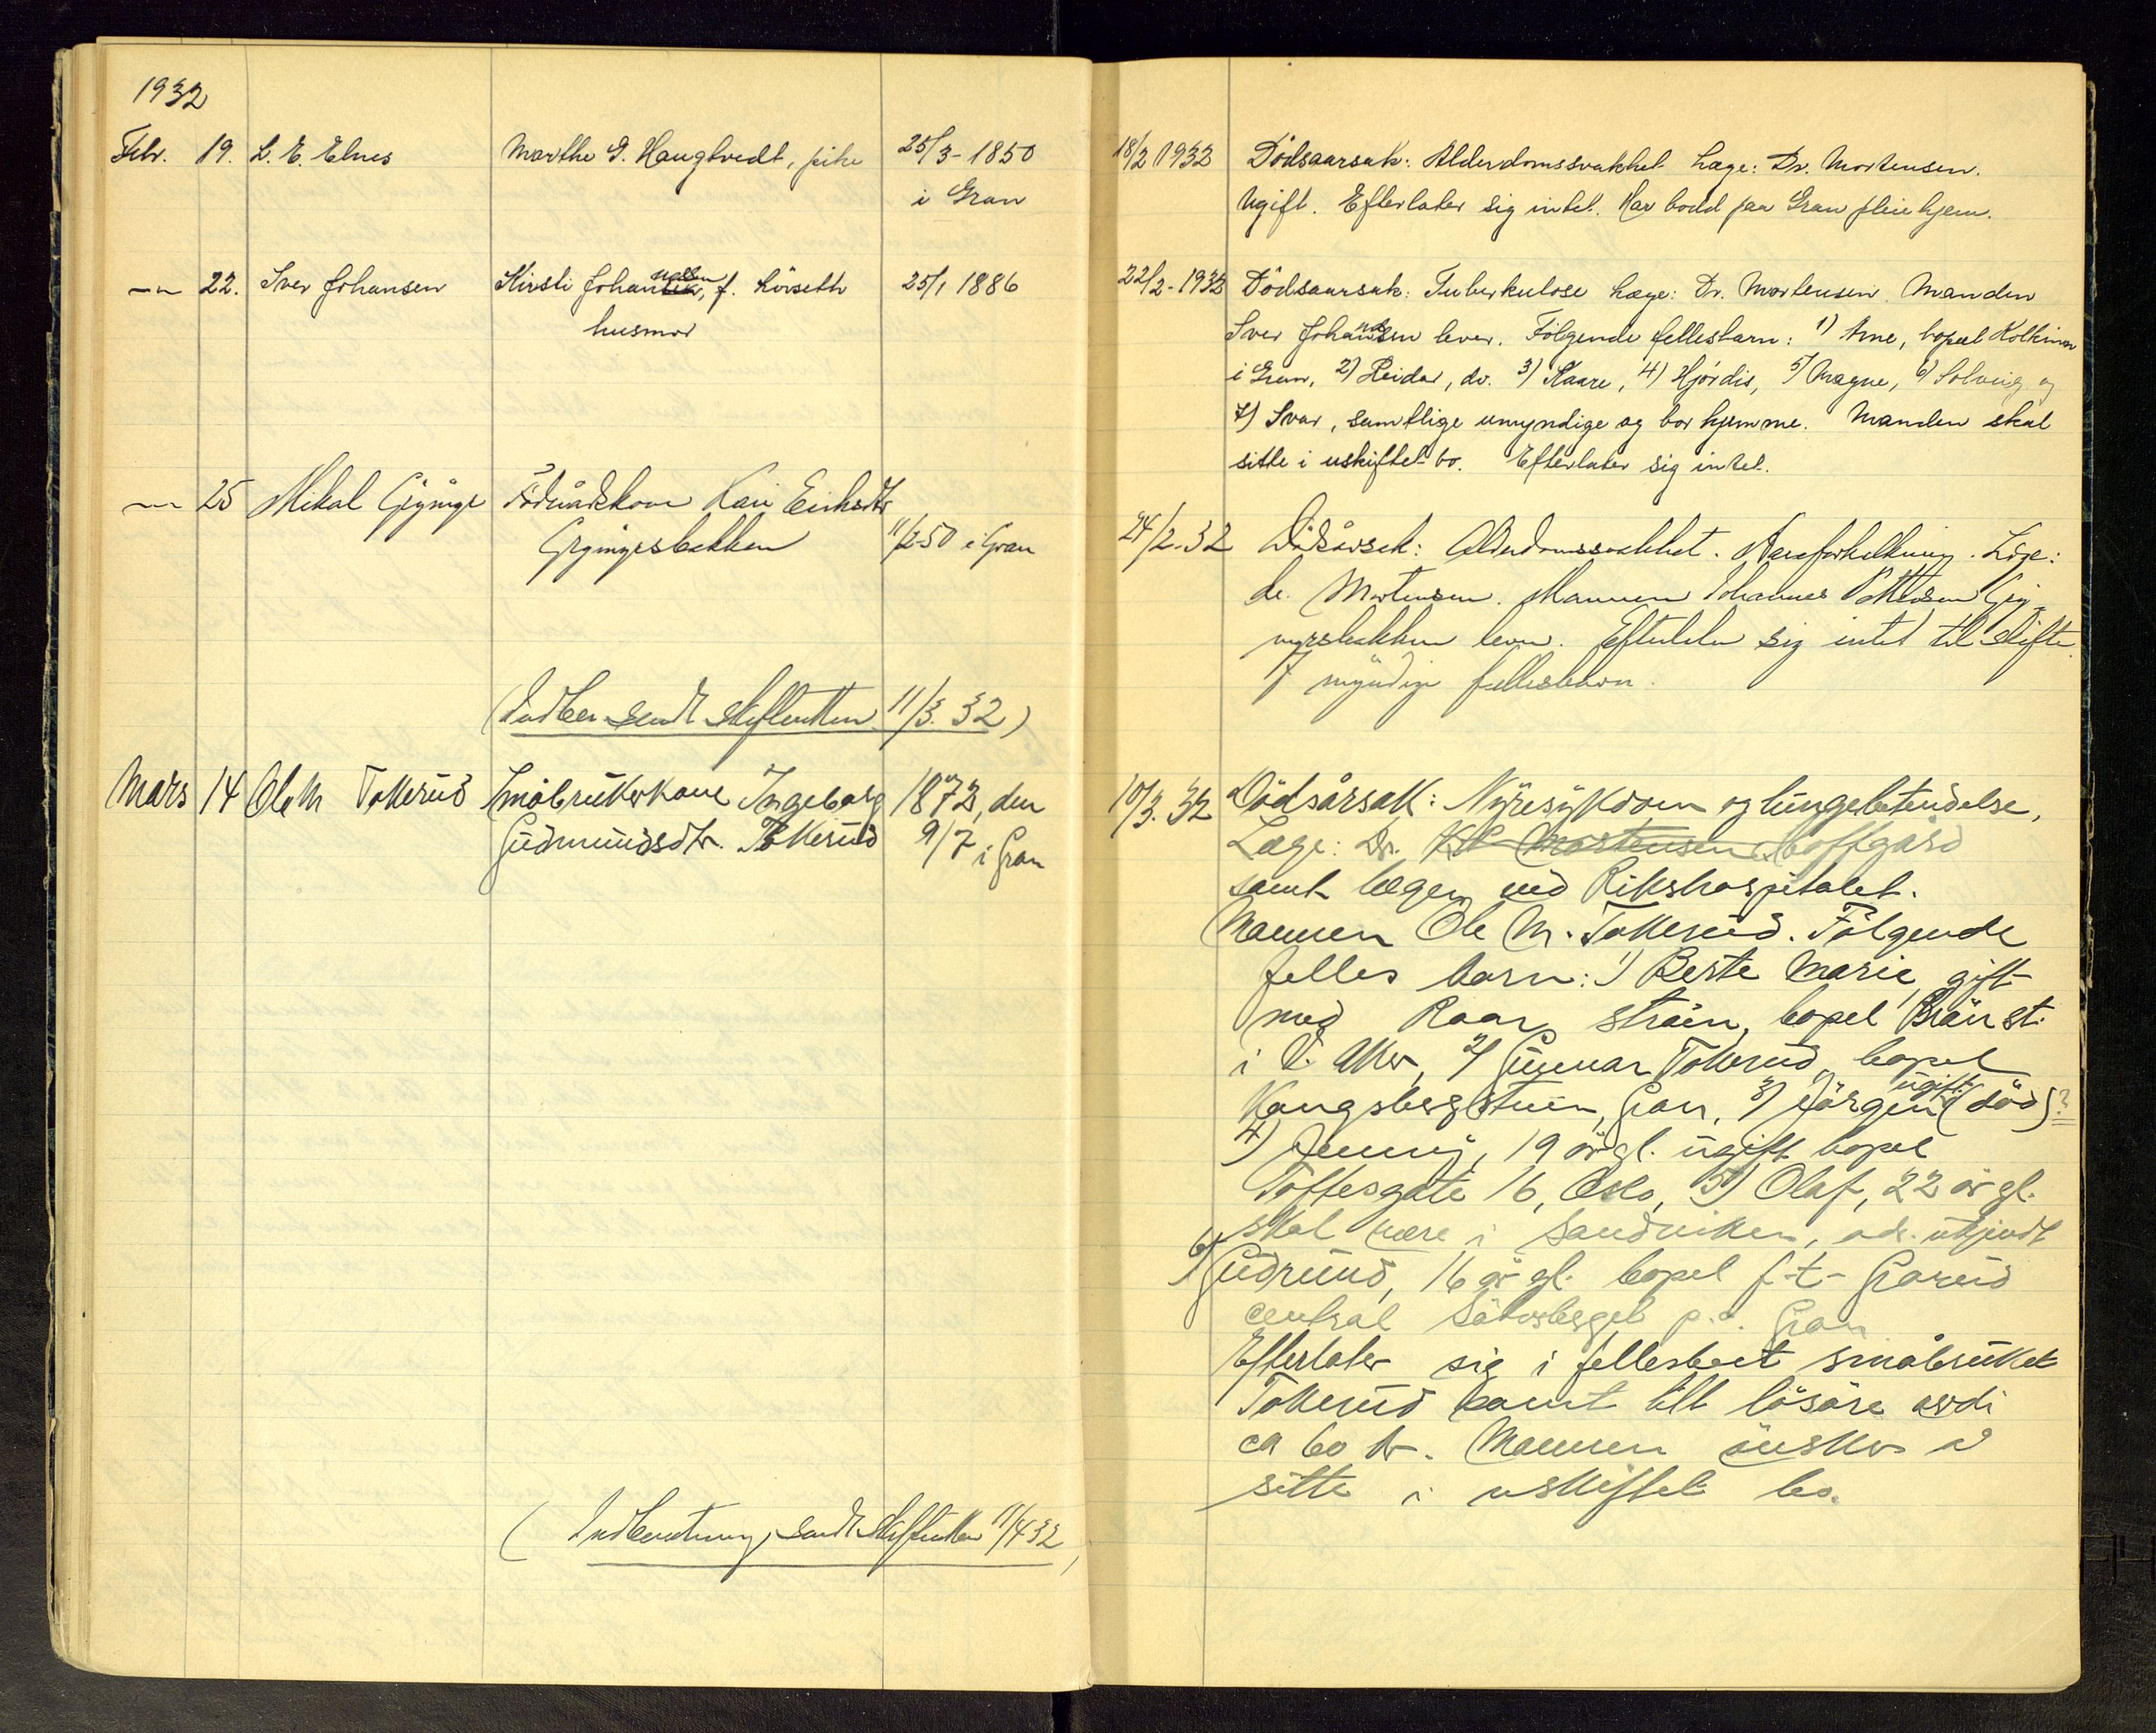 1932
Febr. 19. L. E. Elnes Marthe G. Haugtvedt, pike 25/3-1850
i Gran
-"- 22. Iver Johansen Kirsti Johannessen, f. Lörseth 25/1 1886
husmor
-"- 25 Mikal Grynge Föderådskone Kari Eriksdtr
Gryngesbakken 11/2-50 i Gran
(Indber. sendt skifteretten 11/3. 32)
Mars 14 Ole M Tokerud Småbrukerkone Ingeborg 1873, den
Gudmundsdtr. Tokerud 9/7 i Gran
(Indberetning sendt skifteretten 11/4 32)
18/2 1932 Dödsaarsak: Alderdomssvakhet Læge: Dr. Mortensen.
Ugift. Efterlater sig intet. Har bodd paa Gran pleiehjem.
22/2-1932 Dödsaarsak: Tuberkulose Læge: Dr. Mortensen. Manden
Iver Johansen lever. Fölgende fellesbarn: 1) Arne, bopæl
i Gran, 2) Reidar, do. 3) Kaare, 4) Hjördis, 5) Magne, 6) Solveig og
7) Ivar, samtlige umyndige og bor hjemme. Manden skal
sitte i uskiftet bo. Efterlater sig intet.
24/2-32 Dödsårsak: Alderdomssvakhet. Åreforkalkning. Læge:
dr. Mortensen. Mannen Johannes
lever. Efterlater sig intet til skifte.
7 myndige fellesbarn.
10/3. 32 Dödsårsak: Nyresykdom og lungebetendelse,
Læge: Dr. Mortensen Hoffgård
samt læger ved Rikshospitalet.
Mannen Ole M. Tokerud. Fölgende
felles barn: 1) Berte Marie gift
med Roar bopel st.
i V. Aker, 2) Gunnar Tokerud, bopel
Kongsbergstuen, Gran, 3) Jörgen ugift (död)?
4) Jenny, 19 år gl. ugift bopel
Toftesgate 16, Oslo, 5) Olaf, 22 år gl.
skal være i Sandviken, adr. ukjendt
6) Gudrund, 16 år gl. bopel f.t.
central p.å. Gran
Efterlater sig i fellesboet småbruket
Tokerud samt litt lösöre verdi
ca 60 kr. Mannen önsker å
sitte i uskiftet bo.